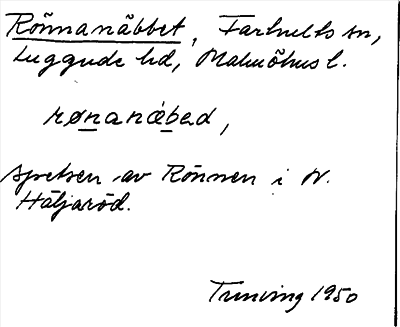 Rönnanäbbet, Farhults sn,
Luggude hd, Malmöhus l.
rønanæ̀bəd,
spetsen av Rönnen i N.
Häljaröd.
Tuneving 1950